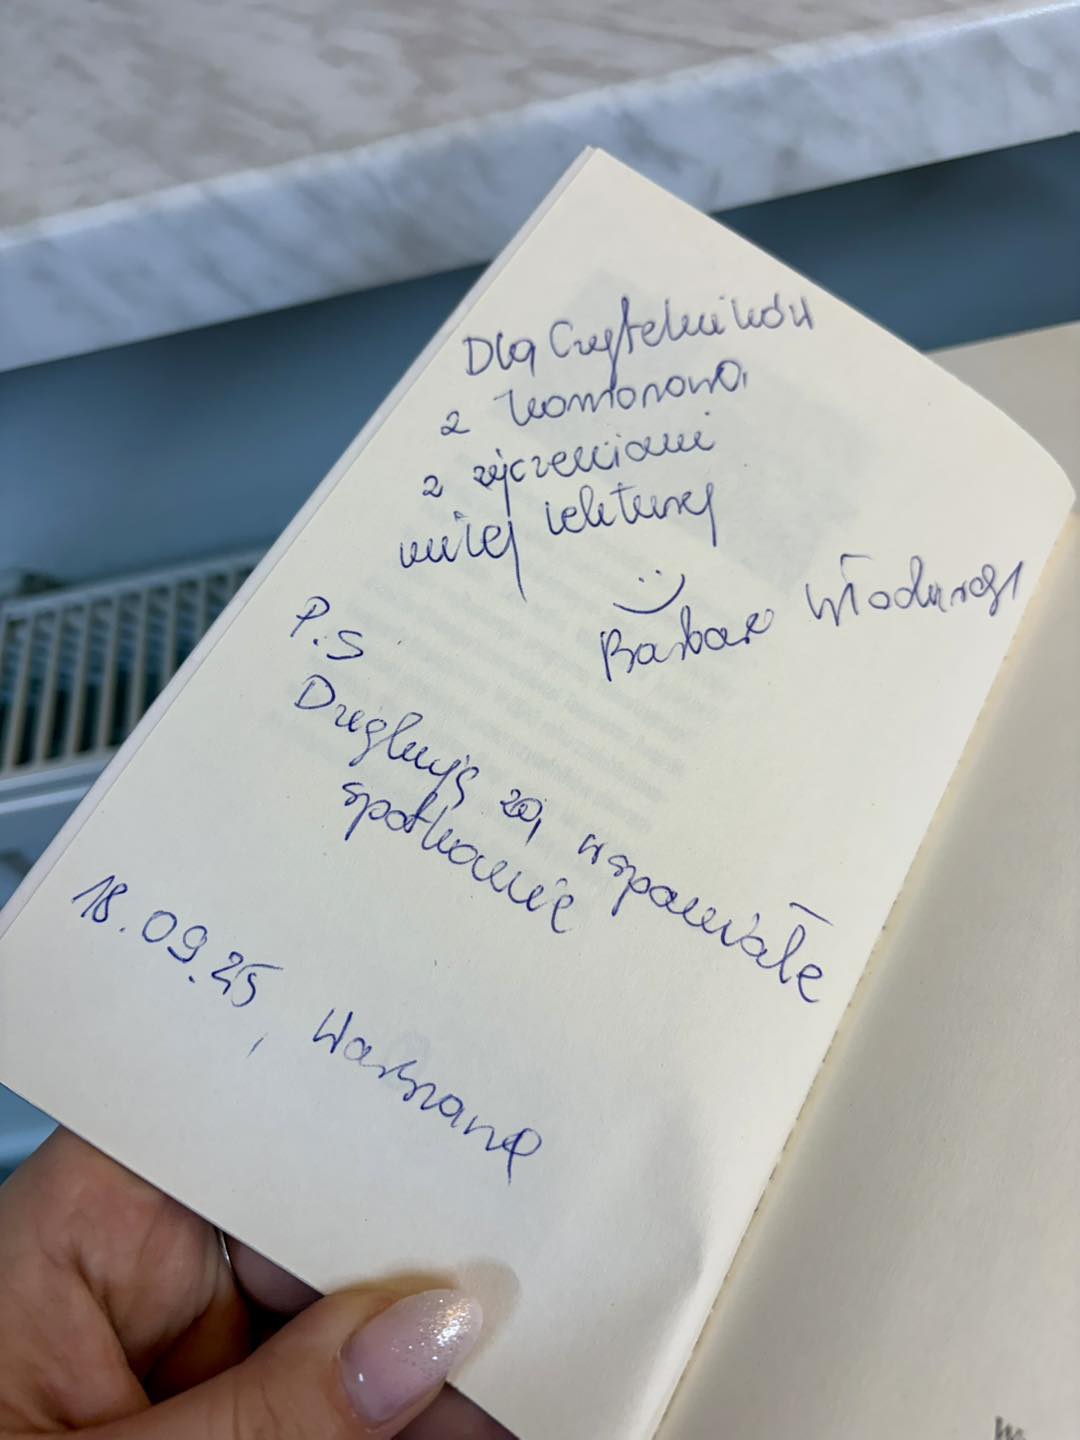 Dla Czytelników
z Komorowa,
z życzeniami
miłej lektury
:)
Barbara Włodarczyk
P.S
Dziękuję za wspaniałe
spotkanie
18.09.25, Warszawa